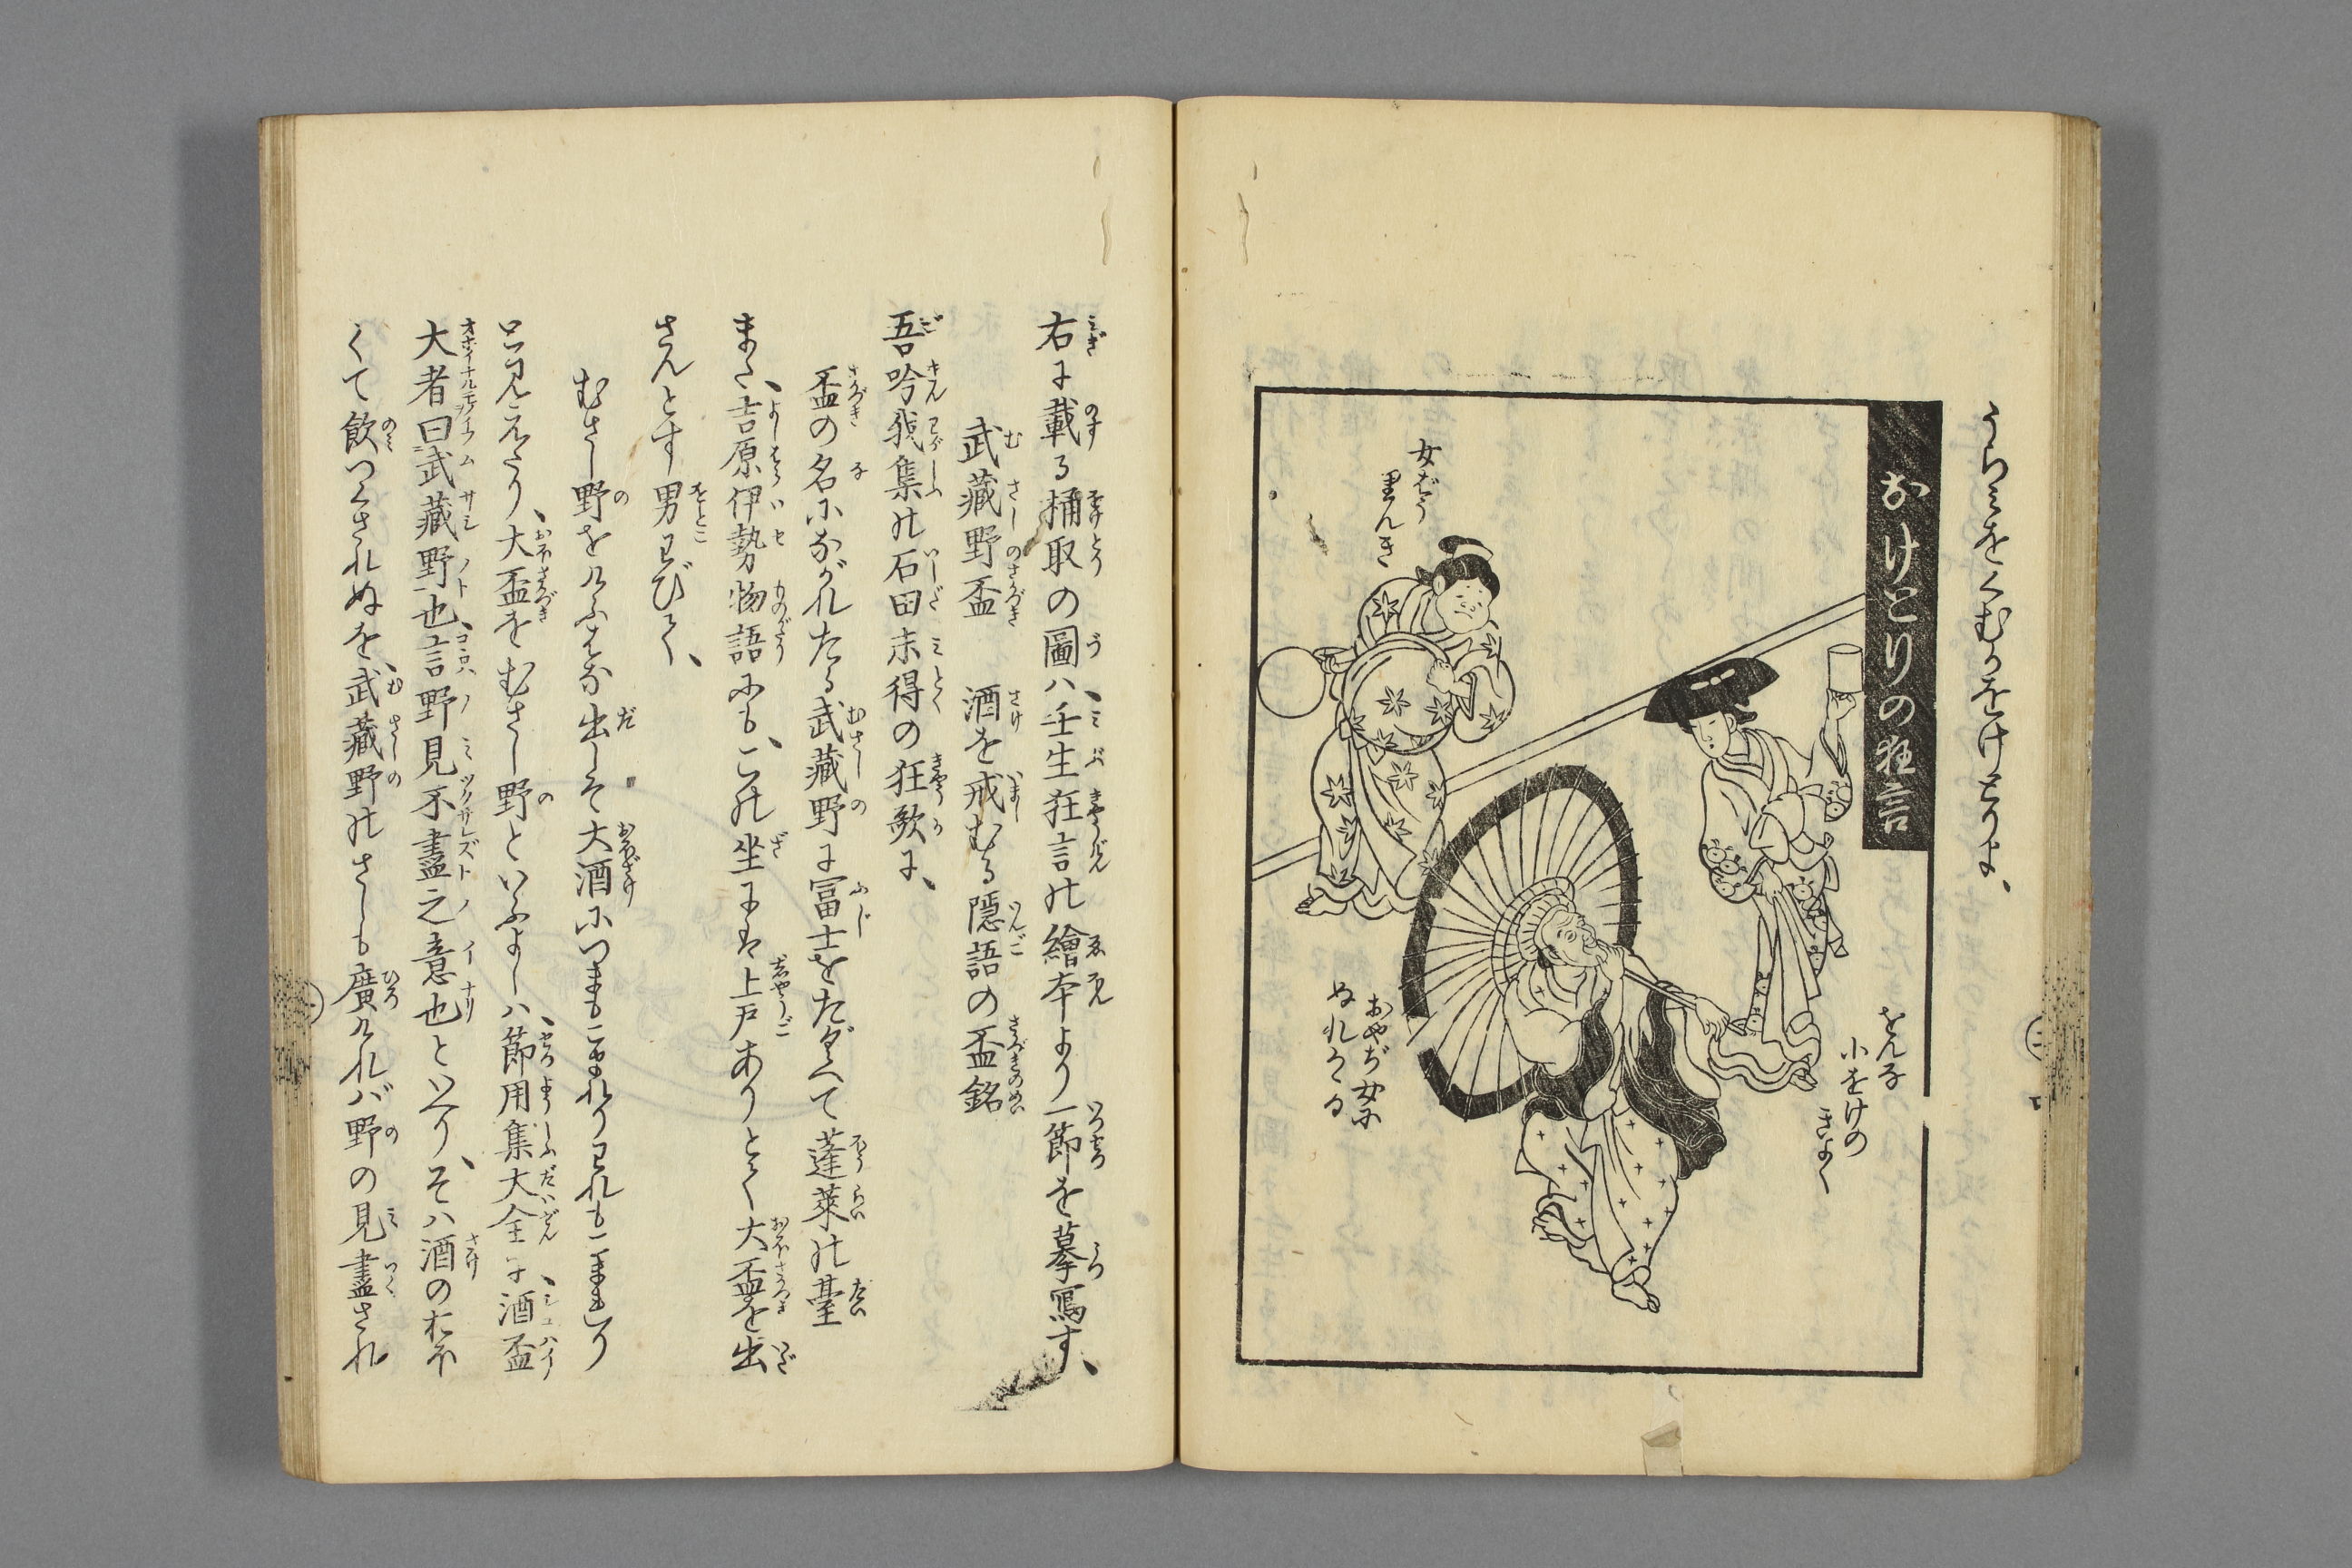 うらみをくむかをけとりよ、
おけとりの狂言
をんな
小をけの
きよく
女ばう
りんき
おやぢ女に
ぬれかゝる
右に載る桶取の圖ハ、壬生狂言の繪本より一節を摹寫す、
武藏野盃　酒を戒むる隠語の盃銘
吾吟我集の石田未得の狂歌に、
盃の名にながれたる武藏野に冨士をたゝへて蓬莱の臺
また、吉原伊勢物語にも、この坐に上戸ありとて大盃を出
さんとす男わびて、
むさし野をけふはな出しそ大酒につまもこまれりわれもこまれり
と見えたり、大盃をむさし野といふよしハ、節用集大全に、酒盃
大者曰武藏野也、言野見不盡之意也といへり、そハ酒のおほ
くて飲つくされぬを、武藏野のさしも廣けれバ野の見盡され